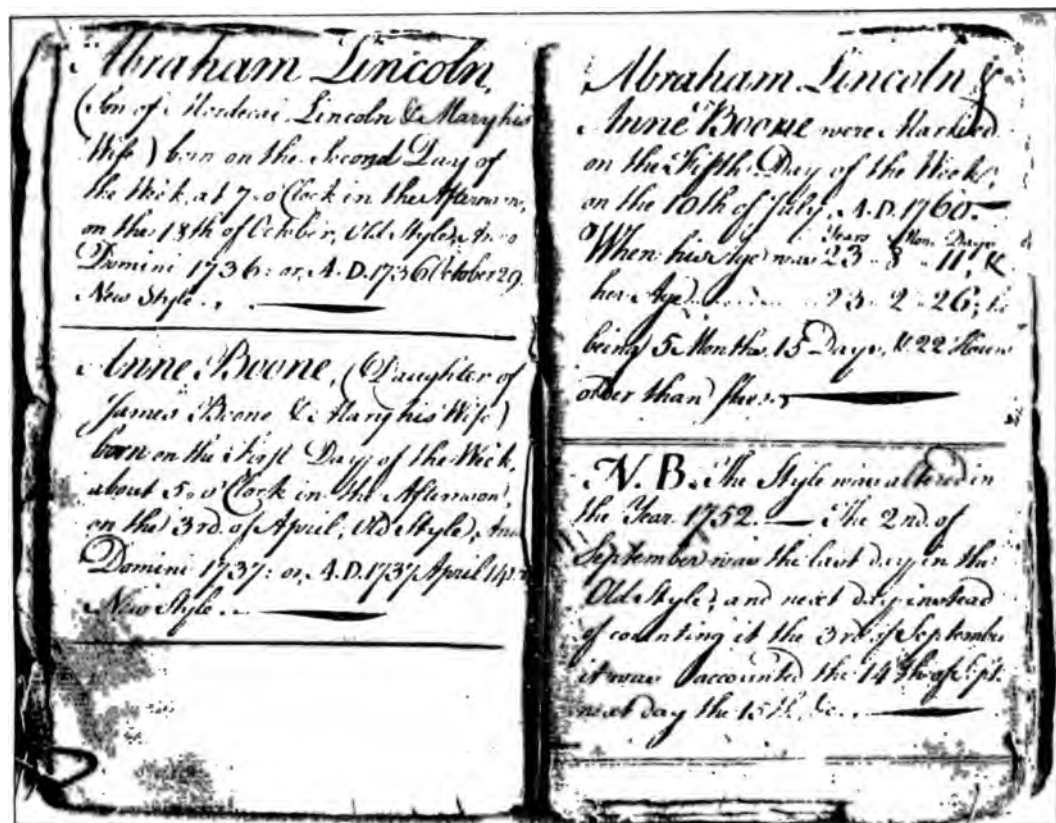 Abraham Lincoln,
(Son of Mordecai Lincoln & Mary his
Wife) born on the Second Day of
the Week, at 7 o'Clock in the Afternoon,
on the 18th of October, Old Style, Anno
Domini 1736: or, A.D. 1736 October 29
New Style.
Anne Boone, (Daughter of
James Boone & Mary his Wife)
born on the First Day of the Week,
about 5 o'Clock in the Afternoon,
on the 3rd. of April, Old Style, Anno
Domini 1737: or, A.D. 1737 April 14
New Style.
Abraham Lincoln &
Anne Boone were Married
on the Fifth Day of the Week,
on the 10th of July, A.D. 1760.
Years Mon. Days
When his Age was 23 - 8 - 11, &
her Age 23 - 2 - 26; he
being 5 Months, 15 Days, & 22 Hours
older than she.
N. B. The Style was altered in
the Year 1752. — The 2nd. of
September was the last day in the
Old Style, and next day instead
of counting it the 3rd. of September
it was accounted the 14th of Sept.
next day the 15th, &c.